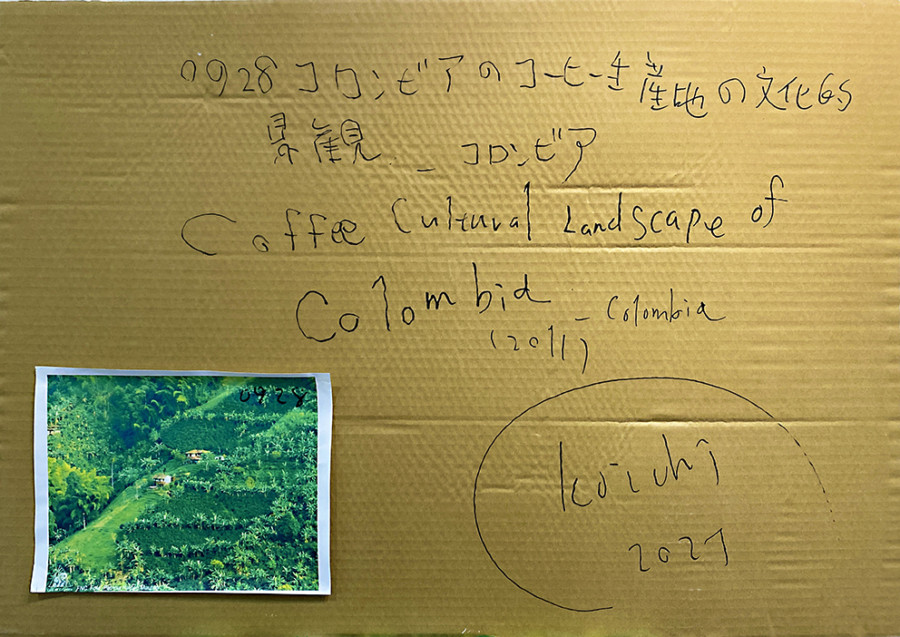 0928 コロンビアのコーヒー生産地の文化的
景観_コロンビア
Coffee Cultural Landscape of
Colombia
(2011)_Colombia
0928
Koichi